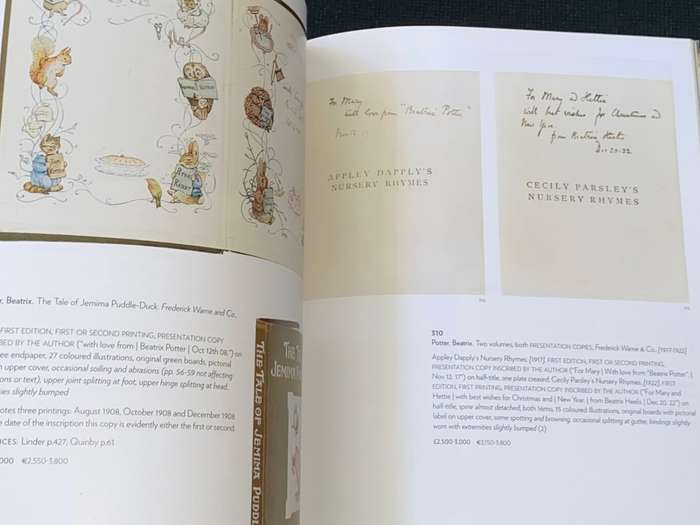 r, Beatrix. The Tale of Jemima Puddle-Duck. Frederick Warne and Co.,
FIRST EDITION, FIRST OR SECOND PRINTING, PRESENTATION COPY
BED BY THE AUTHOR ("with love from | Beatrix Potter | Oct 12th 08.") on
ee endpaper, 27 coloured illustrations, original green boards, pictorial
n upper cover, occasional soiling and abrasions (pp. 56-59 not affecting
ons or text), upper joint splitting at foot, upper hinge splitting at head,
ies slightly bumped
otes three printings: August 1908, October 1908 and December 1908
e date of the inscription this copy is evidently either the first or second.
ICES: Linder p.427; Quinby p.61
000 €2,550-3,800
THE TALE OF JEMIMA PUDD
THE T
JEMIMA P
For Mary
with love from "Beatrix Potter"
Nov 12. 17
APPLEY DAPPLY'S
NURSERY RHYMES
For Mary & Hettie
with best wishes for Christmas &
New Year
from Beatrix Heelis
Dec 20. 22
CECILY PARSLEY'S
NURSERY RHYMES
310
310
310
Potter, Beatrix. Two volumes, both PRESENTATION COPIES, Frederick Warne & Co., [1917-1922]
Appley Dapply's Nursery Rhymes. [1917]. FIRST EDITION, FIRST OR SECOND PRINTING,
PRESENTATION COPY INSCRIBED BY THE AUTHOR ("For Mary | With love from "Beatrix Potter". |
Nov 12. 17") on half-title, one plate creased; Cecily Parsley's Nursery Rhymes. [1922]. FIRST
EDITION, FIRST PRINTING, PRESENTATION COPY INSCRIBED BY THE AUTHOR ("For Mary and
Hettie | with best wishes for Christmas and | New Year. | from Beatrix Heelis | Dec 20. 22") on
half-title, spine almost detached; both 16mo, 15 coloured illustrations, original boards with pictorial
label on upper cover, some spotting and browning, occasional splitting at gutter, bindings slightly
worn with extremities slightly bumped (2)
£2,500-3,000 €3,150-3,800